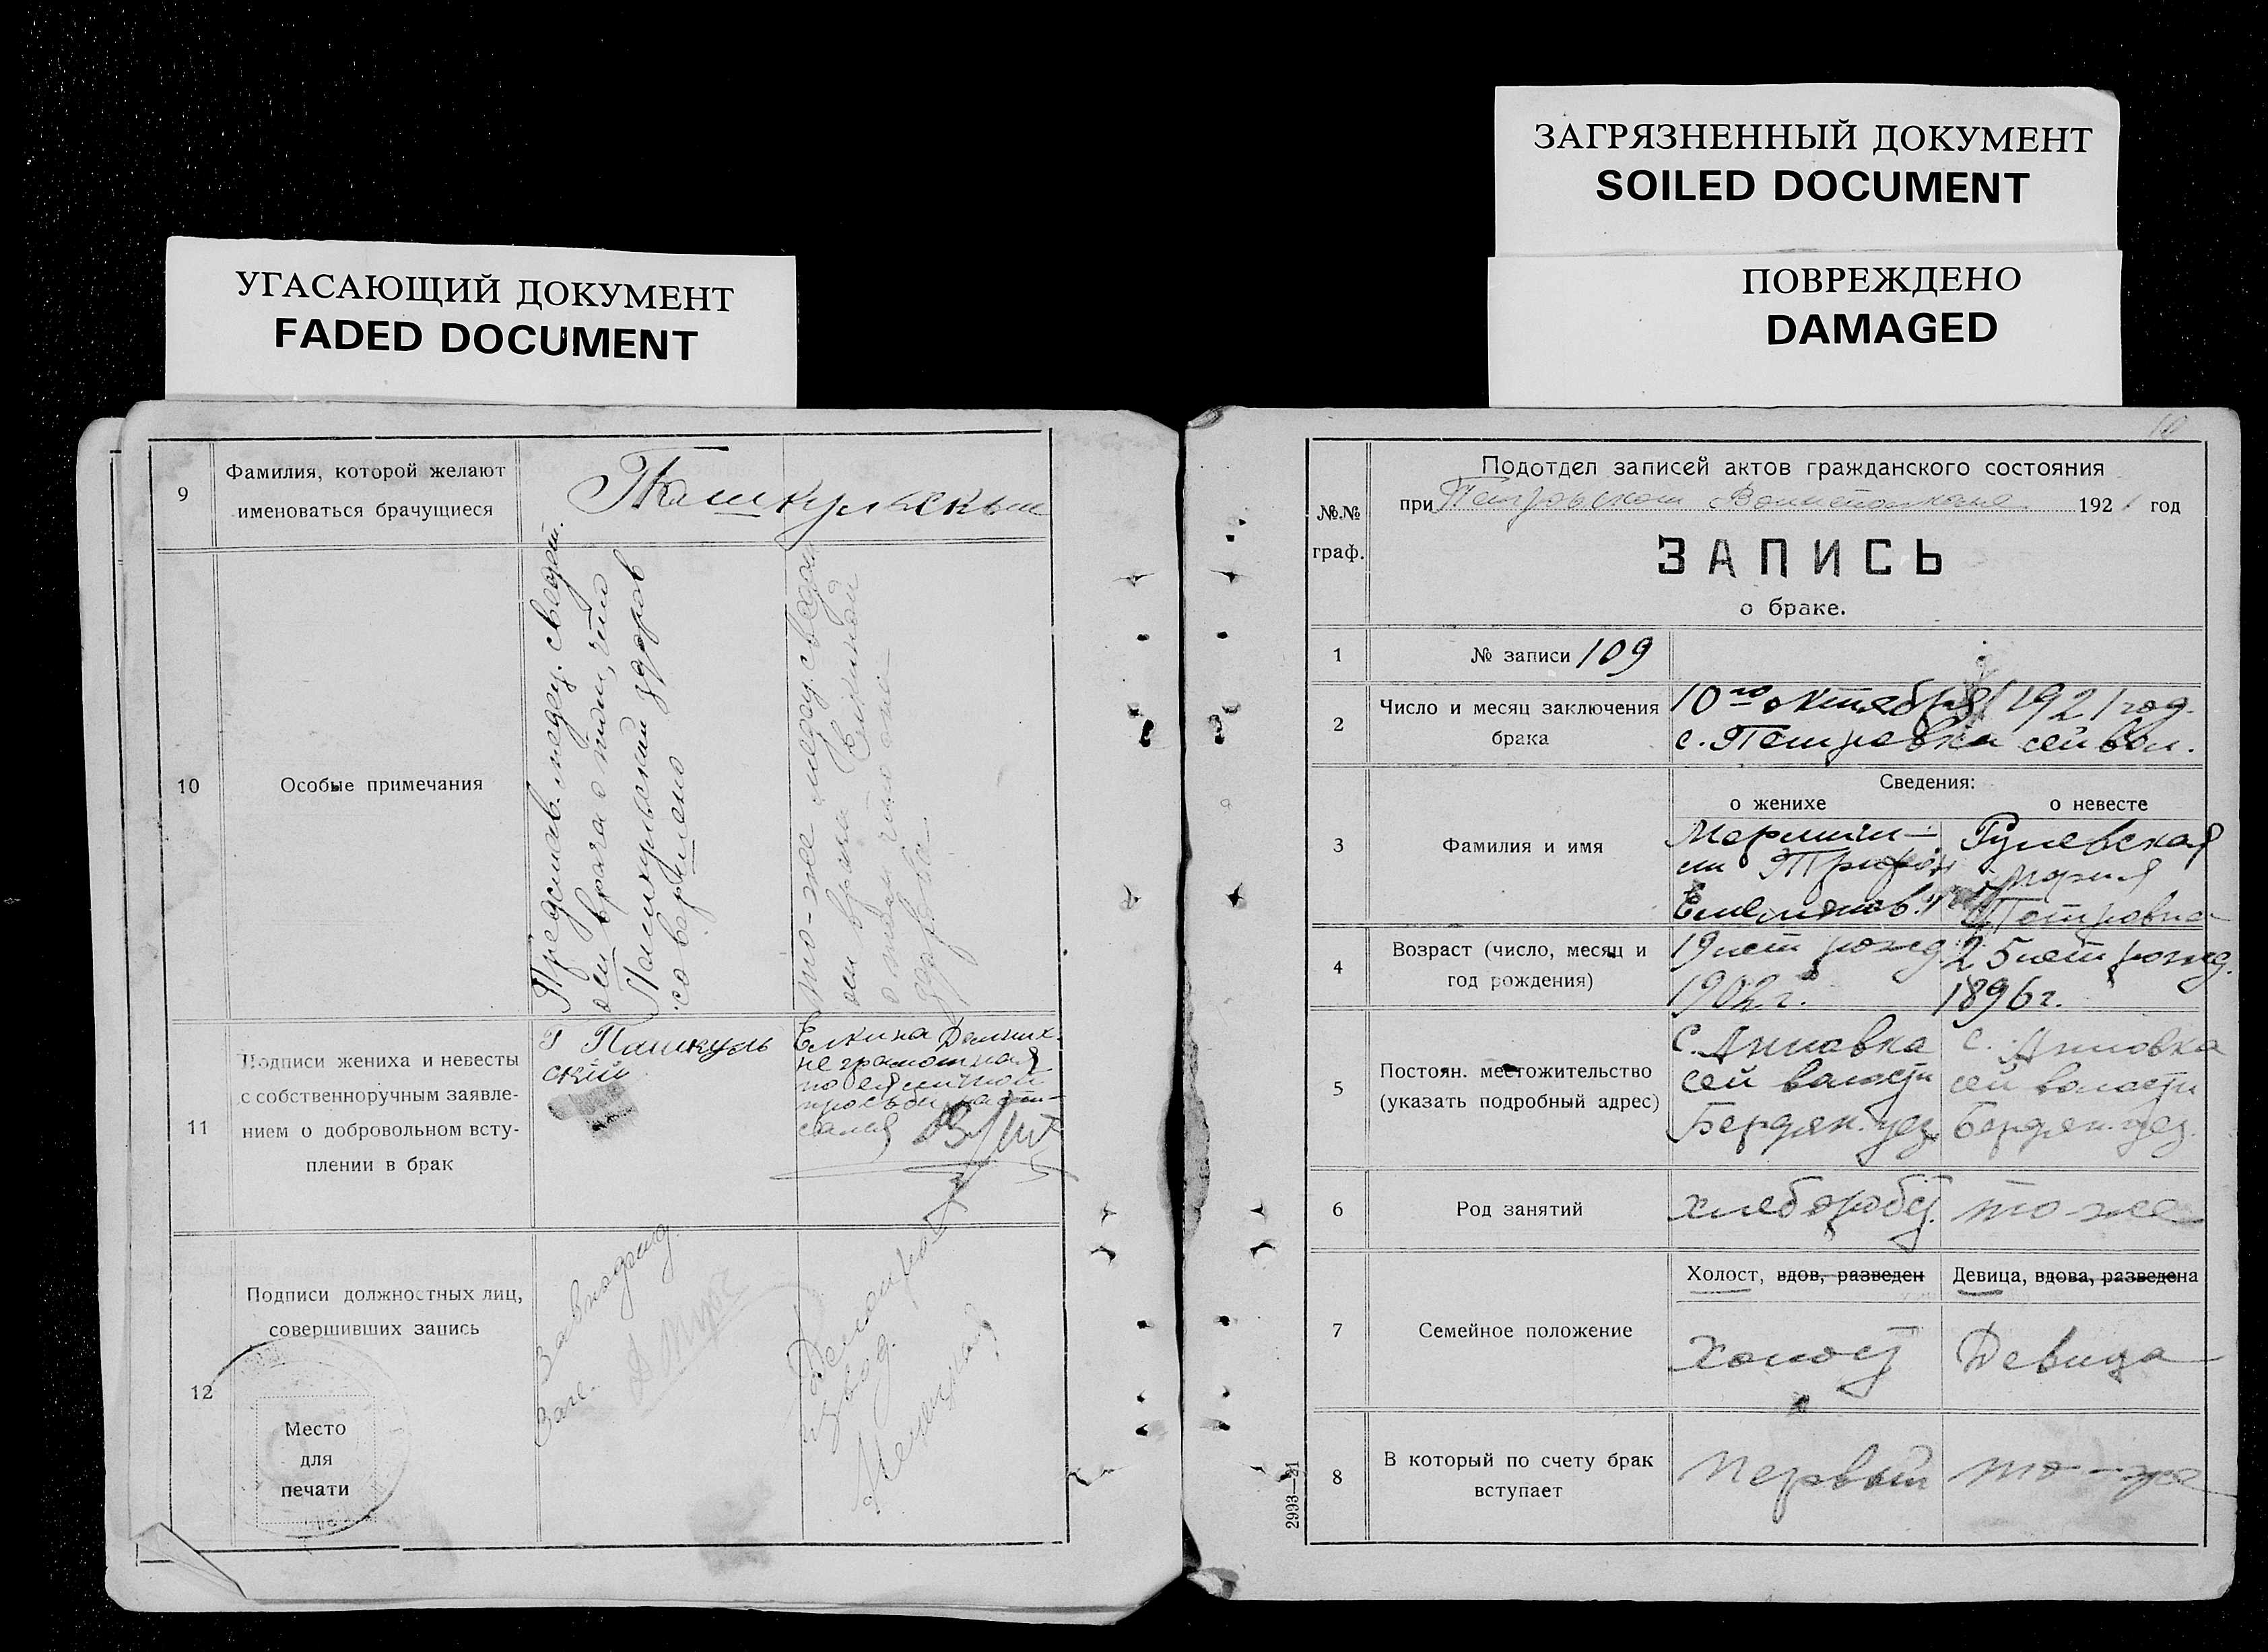 УГАСАЮЩИЙ ДОКУМЕНТ
FADED DOCUMENT
ЗАГРЯЗНЕННЫЙ ДОКУМЕНТ
SOILED DOCUMENT
ПОВРЕЖДЕНО
DAMAGED
9
Фамилия, которой желают
именоваться брачущиеся
Пашкульским
10
Особые примечания
Представ. медец. сведет.
от врача о том, что
Пашкульский здоров
совершено
то-же медец. сведет
от врача Елкиной
о том что она
здорова
11
Подписи жениха и невесты
с собственноручным заявле-
нием о добровольном всту-
плении в брак
Пашкуль
ский
Елкина
неграмотная
по ея личной
просьбе распи-
сался
12
Подписи должностных лиц,
совершивших запись
Место
для
печати
Завподотд
Загс.
Делопроизвод.
№№
граф.
Подотдел записей актов гражданского состояния
при Петровском Волисполкоме 1921 год
ЗАПИСЬ
о браке.
1
№ записи 109
2
Число и месяц заключения
брака
10го октября 1921 год.
с. Петровка сей вол.
Сведения:
о женихе
о невесте
3
Фамилия и имя
Трифон
Емельянов.
Мария
Петровна
4
Возраст (число, месяц и
год рождения)
19 лет рожд
1902 г.
25 лет рожд.
1896 г.
5
Постоян. местожительство
(указать подробный адрес)
С. Анновка
сей волости
Бердян. уез.
С. Анновка
сей волости
Бердян. уез.
6
Род занятий
хлебороб
то-же
7
Семейное положение
Холост, вдов, разведен
Девица, вдова, разведена
Холост
Девица
8
В который по счету брак
вступает
Первый
то-же
2993—21